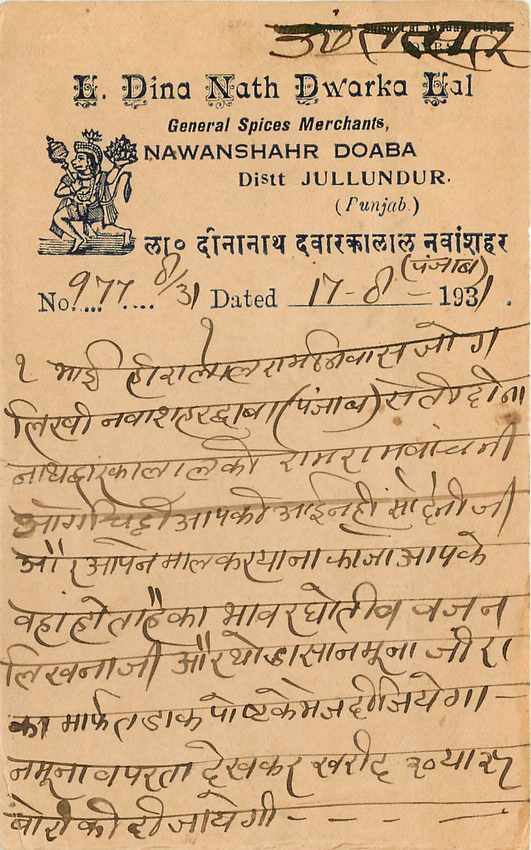 L. Dina Nath Dwarka Lal
General Spices Merchants,
NAWANSHAHR DOABA
Distt JULLUNDUR.
(Punjab.)
ला० दीनानाथ दवारकालाल नवांशहर
(पंजाब)
No. 977 8/31 Dated 17-8-1931.
१
१ भाई हीरालाल रामनिवास जोग
लिखी नवाशहर द्वाबा (पंजाब) से ला दीना
नाथ द्वारकालाल की राम राम बांचनी
आगे चिट्ठी आपकी आई नहीं सो देनी जी
और आपने माल करयाना का जो आपके
वहां होता है का भाव व वजन
लिखना जी और थोड़ा सा नमूना जीरा
का मार्फत डाक पोष्ट के भेज दीजियेगा -
नमूना व परता देखकर खरीद २० या २५
बोरी की दी जायेगी - - - -